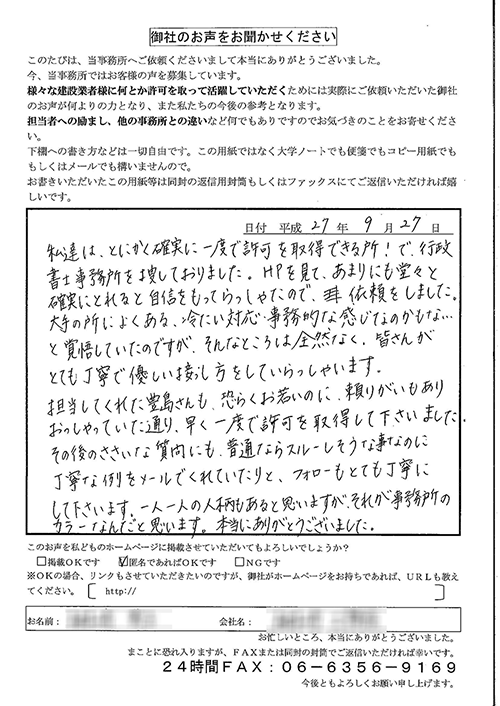 御社のお声をお聞かせください
このたびは、当事務所へご依頼くださいまして本当にありがとうございました。
今、当事務所ではお客様の声を募集しています。
様々な建設業者様に何とか許可を取って活躍していただくためには実際にご依頼いただいた御社
のお声が何よりの力となり、また私たちの今後の参考となります。
担当者への励まし、他の事務所との違いなど何でもありですのでお気づきのことをお寄せくださ
い。
下欄への書き方などは一切自由です。この用紙ではなく大学ノートでも便箋でもコピー用紙でも
もしくはメールでも構いませんので。
お書きいただいたこの用紙等は同封の返信用封筒もしくはファックスにてご返信いただければ嬉
しいです。
日付 平成 27 年 9 月 27 日
私達は、とにかく確実に一度で許可を取得できる所!で、行政
書士事務所を捜しておりました。HPを見て、あまりにも堂々と
確実にとれると自信をもってらっしゃたので、依頼をしました。
大手の所によくある、冷たい対応・事務的な感じなのかもな…
と覚悟していたのですが、そんなところは全然なく、皆さんが
とても丁寧で優しい接し方をしていらっしゃいます。
担当してくれた豊島さんも、恐らくお若いのに、頼りがいもあり
おっしゃっていた通り、早く一度で許可を取得して下さいました。
その後のささいな質問にも、普通ならスルーしそうな事なのに
丁寧な例をメールでくれていたりと、フォローもとても丁寧に
して下さいます。一人一人の人柄もあると思いますが、それが事務所の
カラーなんだと思います。本当にありがとうございました。
このお声を私どものホームページに掲載させていただいてもよろしいでしょうか?
□掲載OKです ☑匿名であればOKです □NGです
※OKの場合、リンクもさせていただきたいのですが、御社がホームページをお持ちであれば、URLも教え
てください。[ http:// ]
お名前: 会社名:
お忙しいところ、本当にありがとうございました。
まことに恐れ入りますが、FAXまたは同封の封筒でご返信いただければ幸いです。
24時間FAX:06-6356-9169
今後ともよろしくお願い申し上げます。